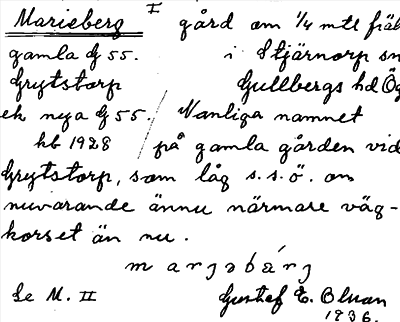 Marieberg I gård om 1/4 mtl fräl
gamla G 55. i Stjärnorp sn
Grytstorp Gullbergs hd Ög
ek nya G 55. Vanliga namnet
hb 1928 på gamla gården vid
Grytstorp, som låg s.s.ö. om
nuvarande ännu närmare väg-
korset än nu.
Se M. II Gustef E. Blman
1936.